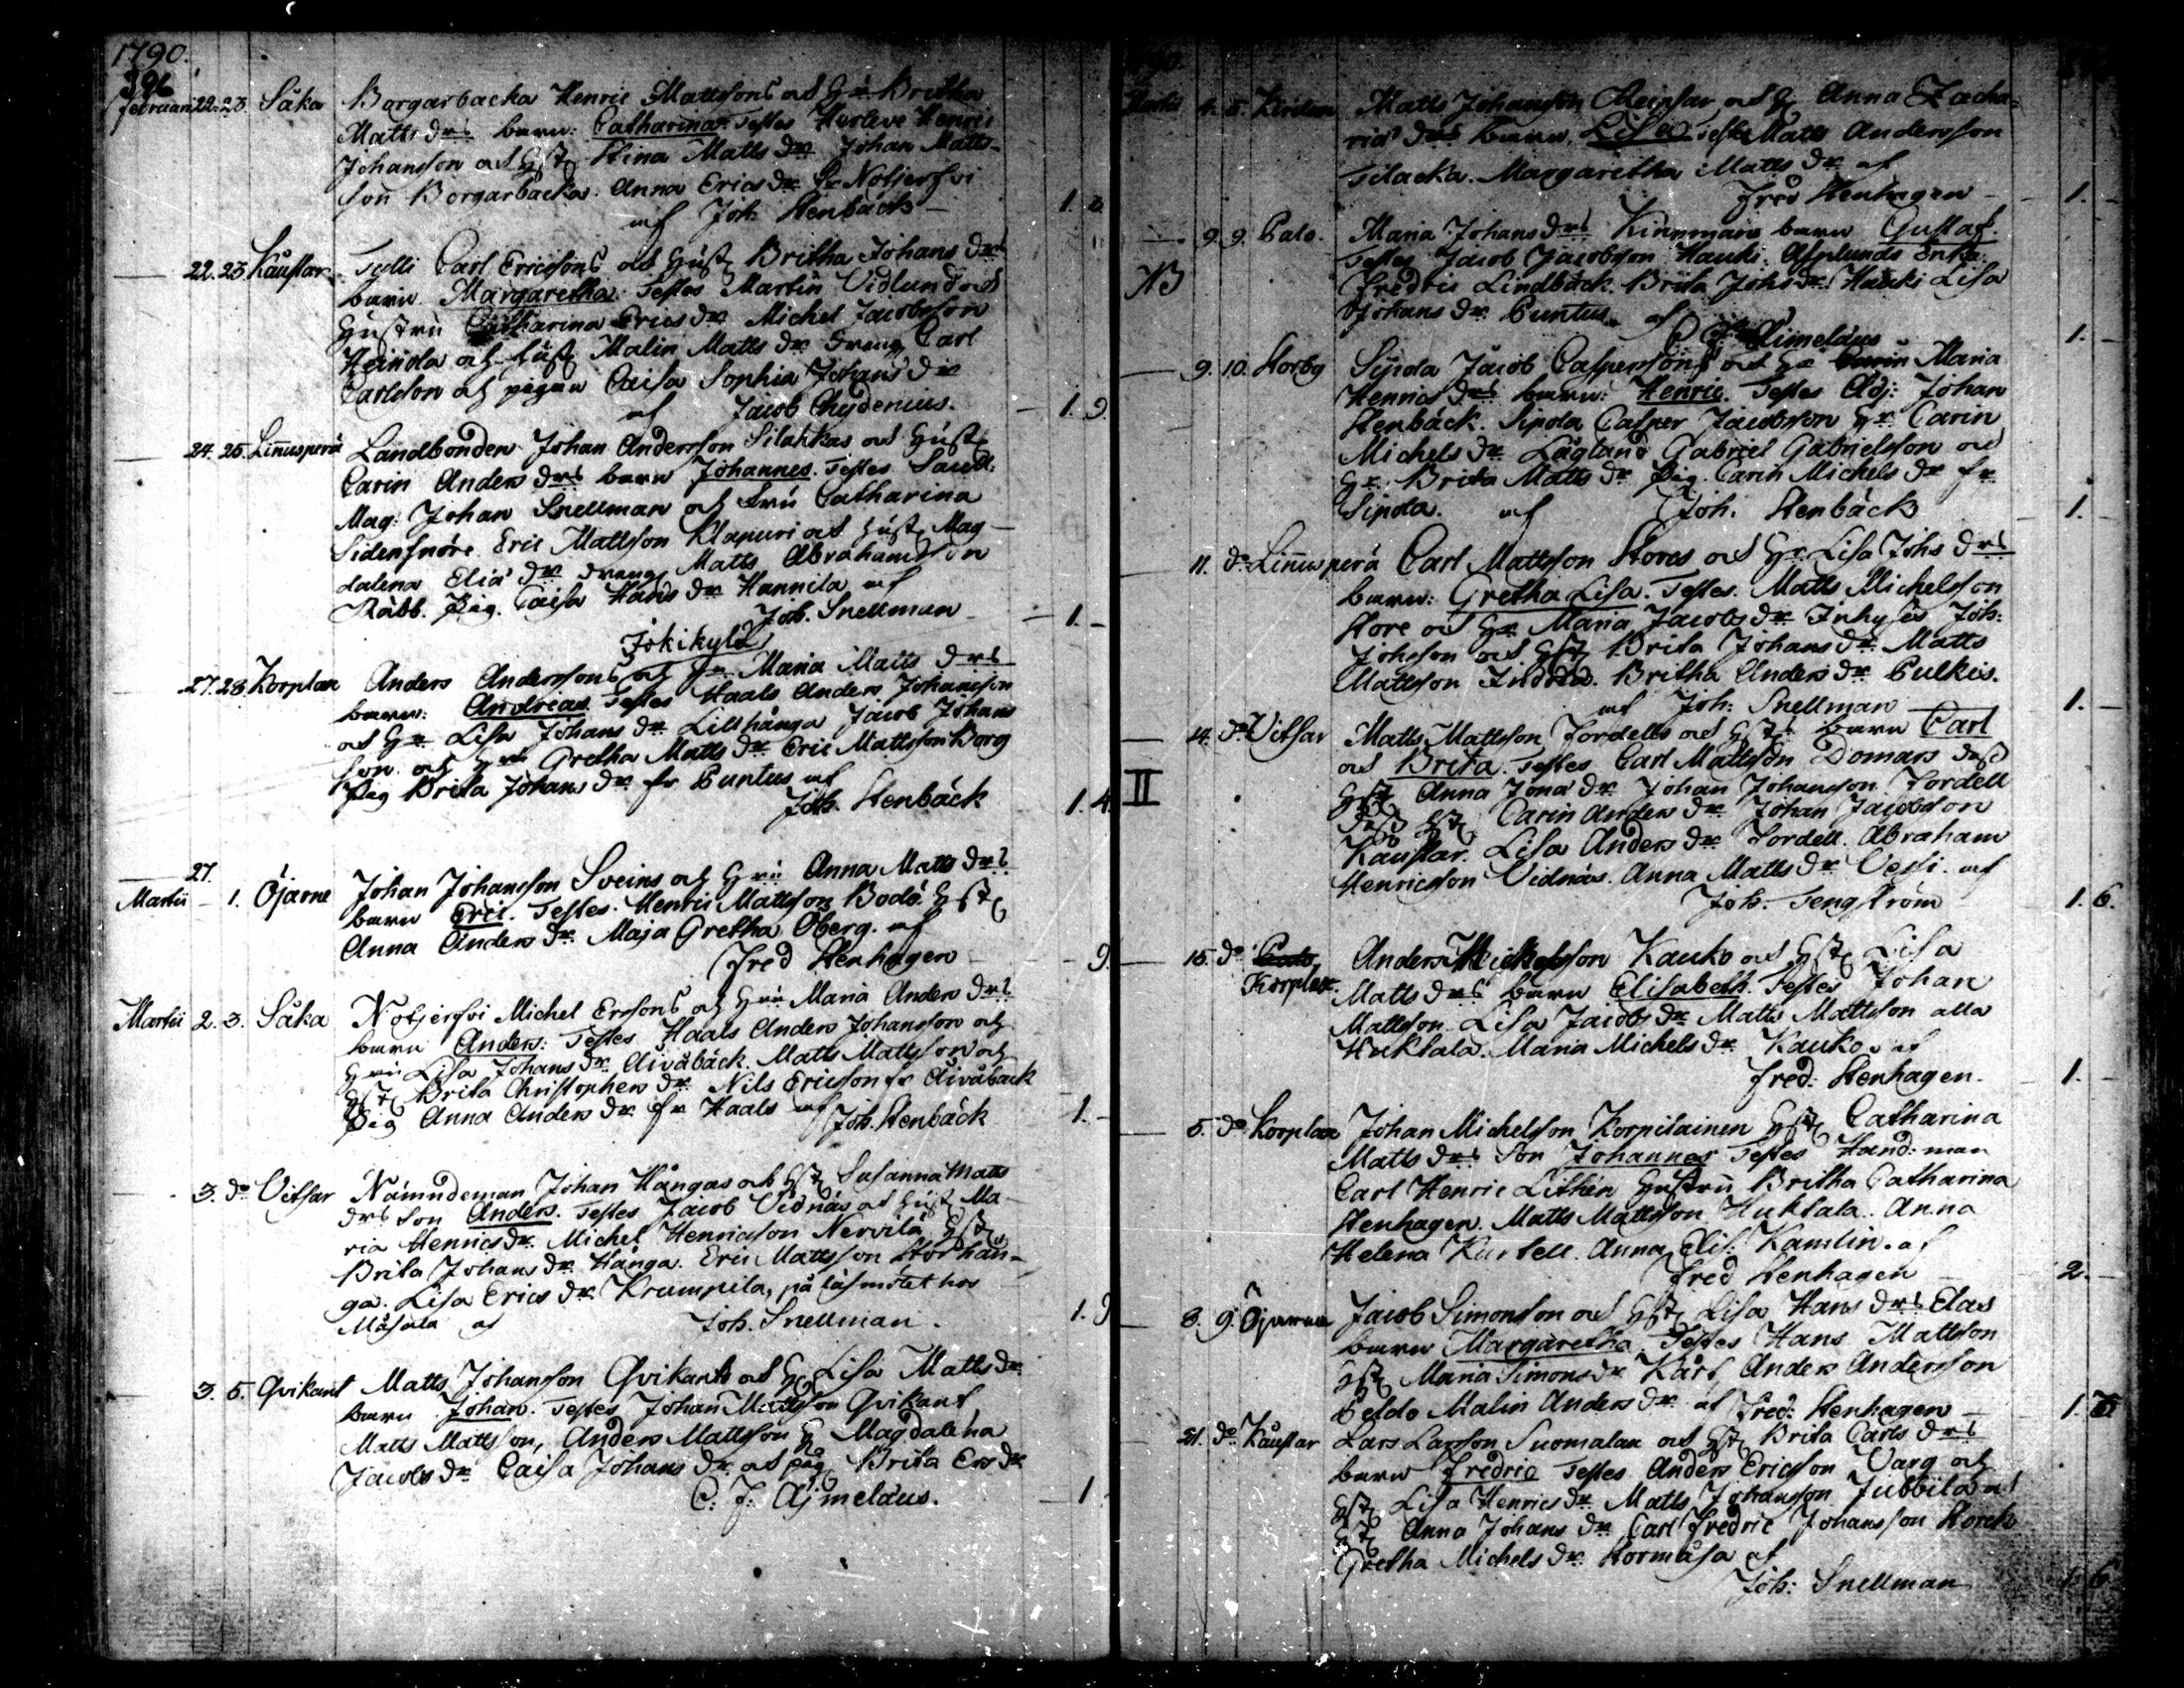 1790.
396
Februari 22. 23. Såka Borgarbacka Henric Mattssons och H:u Britha
Matts drs barn: Catharina. Testes Herleve Henric
Johansson och Hst Stina Matts dr Johan Matts-
son Borgarbacka. Anna Erics dr fr Notjerfvi
af Joh: Stenbäck 1.
22. 23 Käustar Tylli Carl Ericssons och Hust Britha Johans drs
barn Margaretha. Testes Martin Vidlund och
Hustru Catharina Erics dr Michel Jacobsson
Heinola och Hust Malin Matts dr dreng Carl
Carlsson och pigan Caisa Sophia Johans dr
af Jacob Chydenius. 1. 9.
24. 25. Linnusperä Landbonden Johan Andersson Silahkas och Hust
Carin Anders drs barn Johannes. Testes Sacell:
Mag: Johan Snellman och Fru Catharina
Sidensnöre. Eric Mattsson Klapuri och Hust Mag-
dalena Eliæ dr dreng Matts Abrahamsson
Räbb. Pig. Caisa Hans dr Hannila af
Joh. Snellman 1. -
Jokikylä
27. 28. Korplax Anders Anderssons och H:u Maria Matts drs
barn: Andreas. Testes Haals Anders Johansson
och H:u Lisa Johans dr Lillhånga Jacob Johans
son och H:u Gretha Matts dr Eric Mattsson Borg
Pig Brita Johans dr fr Puntus af
Joh. Stenbäck 1. 4.
27.
Martii 1. Öjarne Johan Johansson Sveins och H:ru Anna Matts drs
barn Eric. Testes Henric Mattsson Bodö. Hst
Anna Anders dr Maja Gretha Öberg. af
Fred Stenhagen - 9.
Martii 2. 3. Såka Notjerfvi Michel Ersons och H:ru Maria Anders drs
barn Anders: Testes Haals Anders Johansson och
H:ru Lisa Johans dr Aivåbäck. Matts Mattsson och
Hst Brita Christophers dr Nils Ericsson fr Aivåback
Pig Anna Anders dr fr Haals af Joh. Stenbäck 1. -
3. do Vitsar Nämndeman Johan Hångas och Hst Susanna Matts
drs son Anders. Testes Jacob Vidnäs och Hust Ma-
ria Henrics dr. Michel Henricsson Nervilä Hst
Brita Johans dr Hånga. Eric Mattsson Storhån-
ga. Lisa Erics dr Krumpila, på läsmötet hos
Måsala af Joh. Snellman. 1. 9
3. 5. Qvikant Matts Johansson Qvikants och H: Lisa Matts dr
barn Johan. Testes Johan Mattsson Qvikant
Matts Mattsson, Anders Mattsson H Magdalena
Jacobs dr Caisa Johans dr och pig Brita Ers dr
C: F: Aimelæus. 1
Martii 4. 5. Matts Johansson och H Anna Zacha-
riæ drs barn, Lisa Testes Matts Andersson
Tilacka. Margaretha Matts dr af
Fred Stenhagen 1. -
9. 9. Palo. Maria Johans drs Kinnmans barn Gustaf.
Testes Jacob Jacobsson Hauki. Asplunds Enka.
NB Fredric Lindbäck. Brita Johs dr Hauki Lisa
Johans dr Puntus af
C F Aimelæus 1. -
9. 10. Storby Sipola Jacob Caspersons och H:u Maria
Henrics drs barn: Henric. Testes Adj: Johan
Stenbäck. Sipola Casper Jacobsson H:u Carin
Michels dr Lågland Gabriel Gabrielsson och
H:u Brita Matts dr Pig. Carin Michels dr fr
Sipola. af Joh. Stenbäck 1. -
11. do Linnusperä Carl Mattsson Stores och H:u Lisa Johs drs
barn: Gretha Lisa. Testes. Matts Michelsson
Store och H:u Maria Jacobs dr Joh:
Johsson och Hst Brita Johans dr Matts
Mattsson Indola. Britha Anders dr Pulkis.
af Joh: Snellman 1. -
14. do Vitsar Matts Mattsson Fordells och Hsts barn Carl
och Brita. Testes Carl Mattsson Domars dess
II Hst Anna Jona dr Johan Johansson Fordell
dess Hst Carin Anders dr Johan Jacobsson
Käustar. Lisa Anders dr Fordell. Abraham
Henricsson Vidnäs. Anna Matts dr Vesi. af
Joh. Tengström 1. 6.
15. do Anders Mickelsson Kauko och Hst Lisa
Korplax. Matts drs barn Elisabeth. Testes Johan
Mattsson Lisa Jacobs dr Matts Mattsson alla
Huktala. Maria Michels dr Kauko. af
Fred: Stenhagen. 1. -
5. do Korplax Johan Michelsson Korpilainen Hst Catharina
Matts drs Son Johannes Testes Hand: man
Carl Henric Lithén Hustru Britha Catharina
Stenhagen. Matts Mattsson Huktala. Anna
Helena Kartell. Anna Elis: Kamlin. af
Fred Stenhagen 2. -
8. 9. Öjarna Jacob Simonson och Hst Lisa Hans drs Elas
barn Margaretha. Testes Hans Mattsson
Hst Maria Simons dr Kårt, Anders Andersson
Peldo Malin Anders dr af Fred: Stenhagen 1.
21. do Käustar Lars Larsson Suomalax och Hst Brita Carls drs
barn Fredric Testes Anders Ericsson Varg och
Hst Lisa Henrics dr Matts Johansson Jubbila och
Hst Anna Johans dr Carl Fredric Johansson Storck
Gretha Michels dr Stormåsa af
Joh: Snellman 1. 6